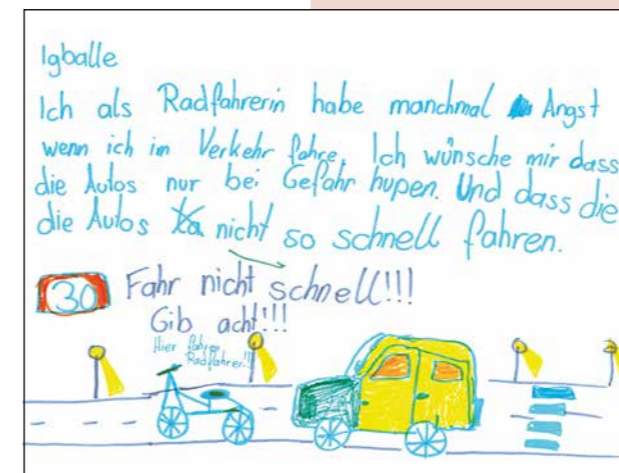 Igballe
Ich als Radfahrerin habe manchmal Angst
wenn ich im Verkehr fahre. Ich wünsche mir dass
die Autos nur bei Gefahr hupen. Und dass die
die Autos nicht so schnell fahren.
30 Fahr nicht schnell!!!
Gib acht!!!
Hier fahren
Radfahrer!!!